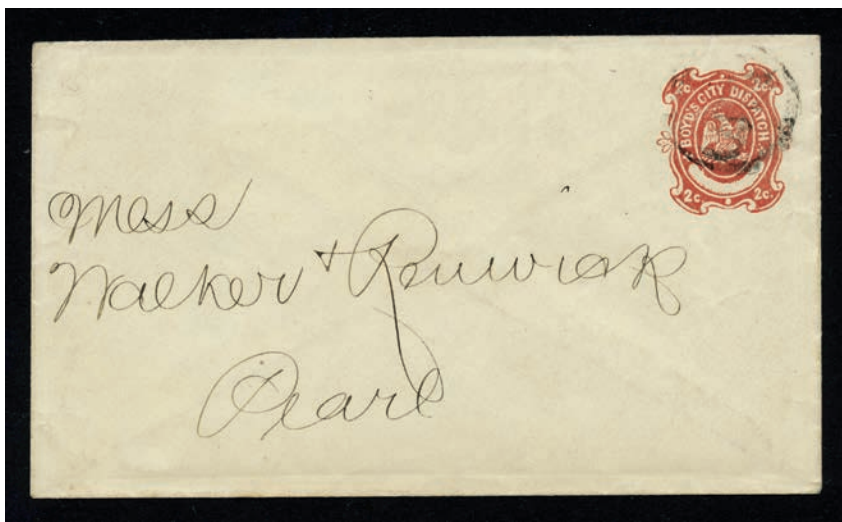 2c. 2c.
BOYD'S CITY DISPATCH
2c. 2c.
Mess
Walker + Renwick
Pearl